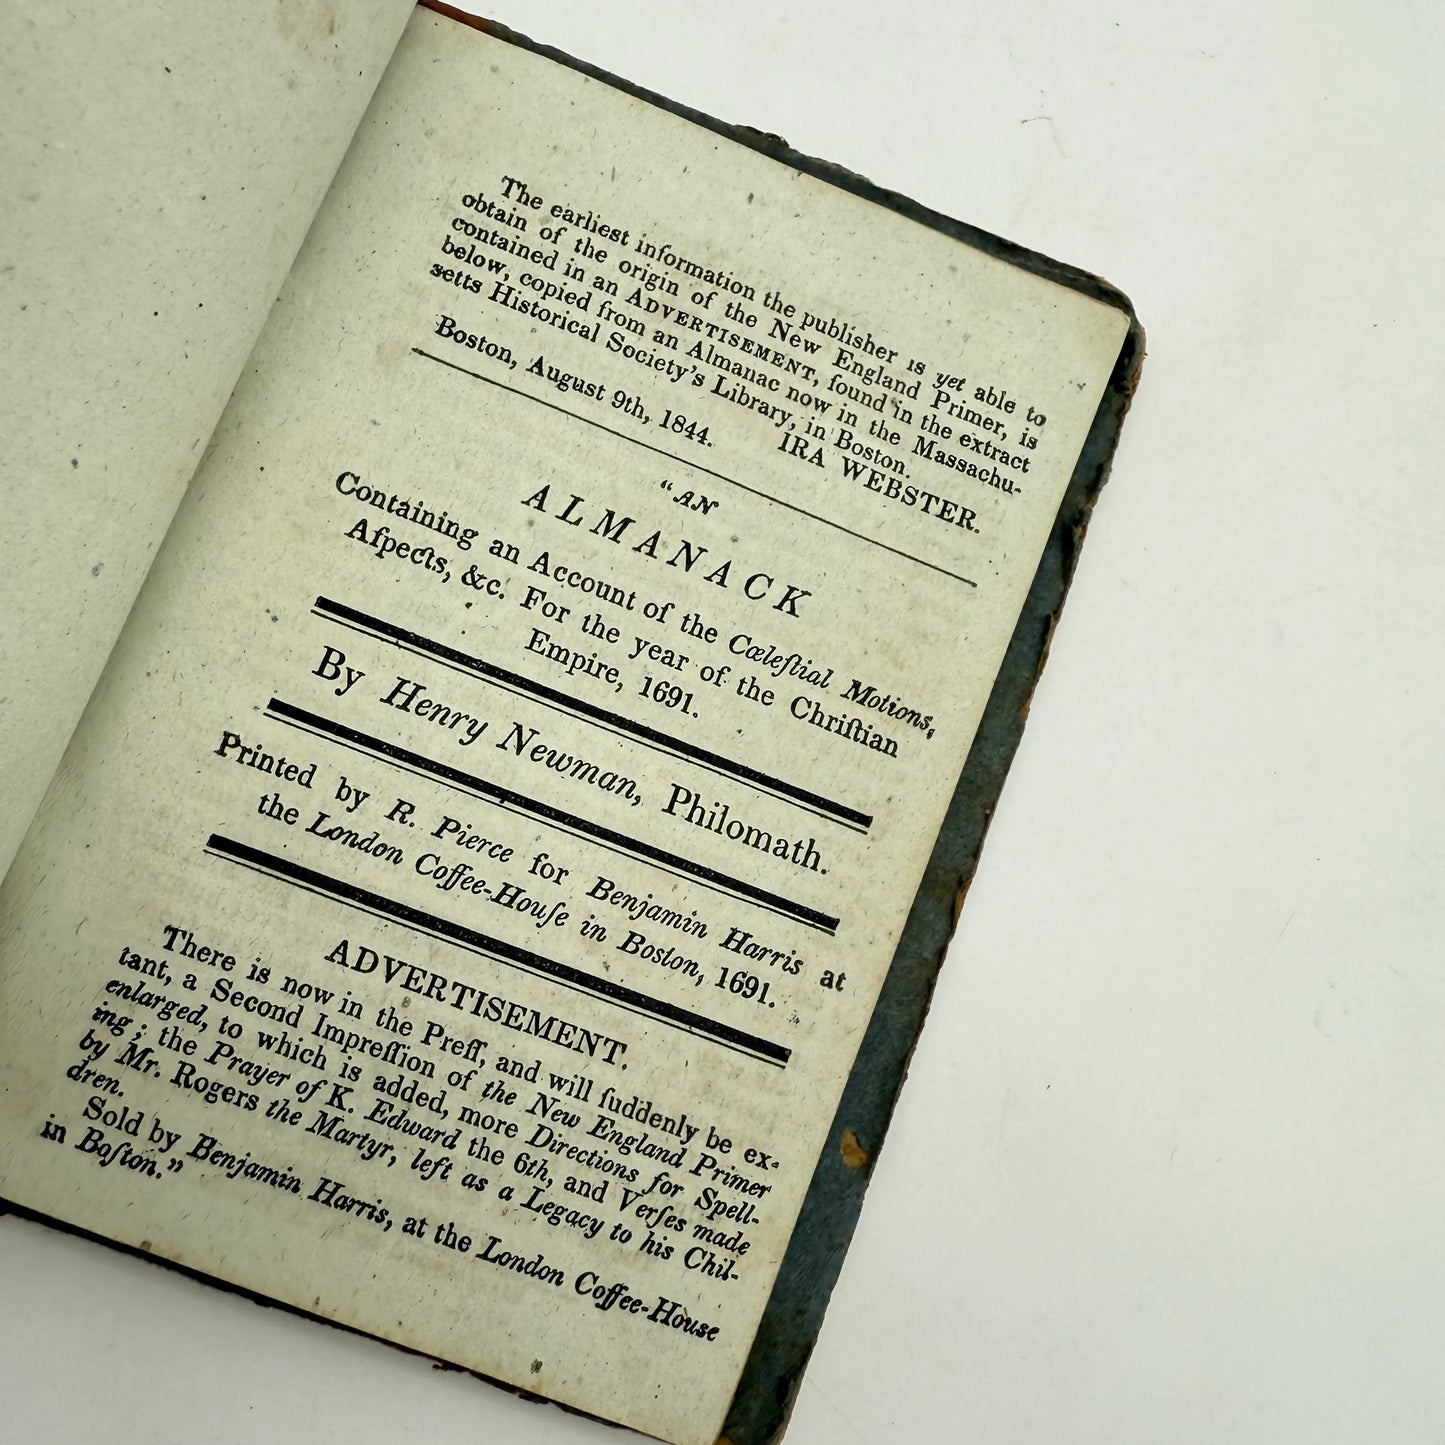 The earliest information the publisher is yet able to
obtain of the origin of the New England Primer, is
contained in an ADVERTISEMENT, found in the extract
below, copied from an Almanac now in the Massachu-
setts Historical Society's Library, in Boston.
IRA WEBSTER.
Boston, August 9th, 1844.
“AN
ALMANACK
Containing an Account of the Cœleſtial Motions,
Aſpects, &c. For the year of the Chriſtian
Empire, 1691.
By Henry Newman, Philomath.
Printed by R. Pierce for Benjamin Harris at
the London Coffee-Houſe in Boston, 1691.
ADVERTISEMENT.
There is now in the Preſſ, and will ſuddenly be ex-
tant, a Second Impreſſion of the New England Primer
enlarged, to which is added, more Directions for Spell-
ing; the Prayer of K. Edward the 6th, and Verſes made
by Mr. Rogers the Martyr, left as a Legacy to his Chil-
dren.
Sold by Benjamin Harris, at the London Coffee-House
in Boſton.”